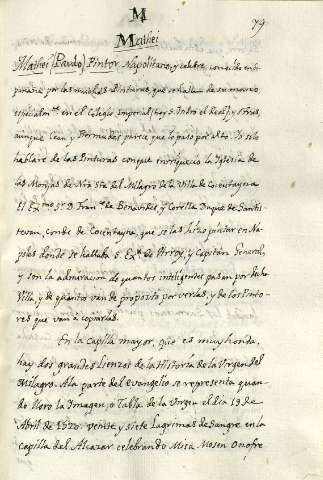 M
79
Mathei
Mathei (Paulo) Pintor Napolitano, y celebre, conocido en
por las muchas Pinturas que se hallan de su mano
especialmte. en el Colegio Imperial (hoy S. Isidro el Real) y otras,
aunque Cean y Bermudez parece que lo paso por alto. Yo solo
hablare de las Pinturas con que enriqueció la Iglesia de
las Monjas de Nra Sra del Milagro de la Villa de Cocentayna
El Exmo. Sr. D. Franco. de Benavides y Corella Duque de Santis
tevan conde de Cocentayna, que se las hizo pintar en Na
poles donde se hallaba S. Exa. de Virrey, y Capitan General,
y son la admiracion de quantos inteligentes pasan por dicha
Villa, y de quantos van de proposito por verlas, y de los Pinto
res que van a copiarlas.
En la Capilla mayor, que es muy honda,
hay dos grandes Lienzos de la Historia de la Virgen del
Milagro. A la parte del Evangelio se representa quan
do lloro la Imagen, o Tabla de la Virgen el dia 19 de
Abril de 1520. veinte y siete Lagrimas de Sangre en la
capilla del Alcazar celebrando Misa Mosen Onofre